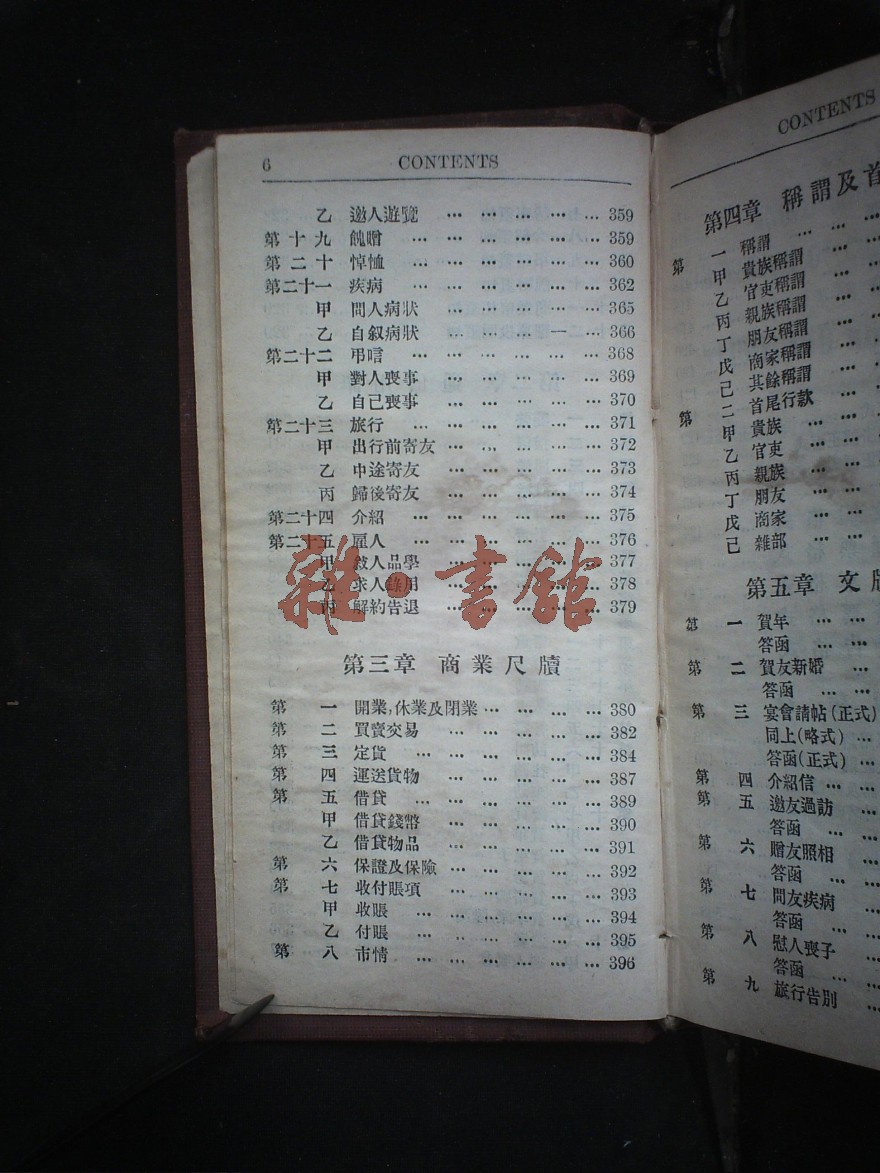 6 CONTENTS
乙 邀人遊覽 … … … … … … 359
第十九 餽贈 … … … … … … 359
第二十 悼恤 … … … … … … 360
第二十一 疾病 … … … … … … 362
甲 問人病狀 … … … … … 365
乙 自叙病狀 … … … 一 … 366
第二十二 弔唁 … … … … … … 368
甲 對人喪事 … … … … … 369
乙 自己喪事 … … … … … 370
第二十三 旅行 … … … … … … 371
甲 出行前寄友 … … … … … 372
乙 中途寄友 … … … … … 373
丙 歸後寄友 … … … … … 374
第二十四 介紹 … … … … … … 375
第二十五 雇人 … … … … … … 376
甲 教人品學 … … … … … 377
乙 求人錄用 … … … … … 378
丙 解約告退 … … … … … 379
雜·書館
第三章 商業尺牘
第一 開業,休業及閉業 … … … … 380
第二 買賣交易 … … … … … 382
第三 定貨 … … … … … … 384
第四 運送貨物 … … … … … 387
第五 借貸 … … … … … … 389
甲 借貸錢幣 … … … … … 390
乙 借貸物品 … … … … … 391
第六 保證及保險 … … … … … 392
第七 收付賬項 … … … … … 393
甲 收賬 … … … … … … 394
乙 付賬 … … … … … … 395
第八 市情 … … … … … … 396
CONTENTS
第四章 稱謂及首
第一 稱謂 … … …
甲 貴族稱謂 …
乙 官吏稱謂 …
丙 親族稱謂
丁 朋友稱謂 …
戊 商家稱謂 …
己 其餘稱謂 …
第二 首尾行款 …
甲 貴族 … …
乙 官吏 … …
丙 親族 … …
丁 朋友 … …
戊 商家 … …
己 雜部 … …
第五章 文牘
第一 賀年 … …
答函 … …
第二 賀友新婚 …
答函 … …
第三 宴會請帖(正式)
同上(略式) …
答函(正式) …
第四 介紹信 … …
第五 邀友過訪 …
答函 … …
第六 贈友照相 …
答函 … …
第七 問友疾病 …
答函 … …
第八 慰人喪子 …
答函 … …
第九 旅行告別 …